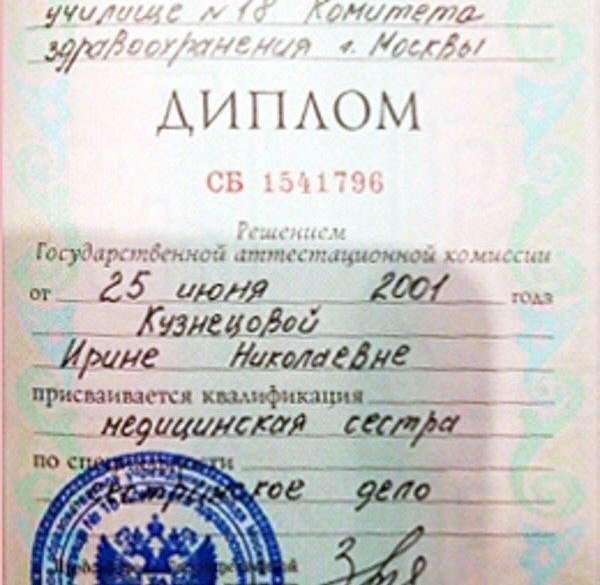 училище №18 Комитета
здравоохранения г. Москвы
ДИПЛОМ
СБ 1541796
Решением
Государственной аттестационной комиссии
от 25 июня 2001 года
Кузнецовой
Ирине Николаевне
присваивается квалификация
медицинская сестра
по специальности
сестринское дело